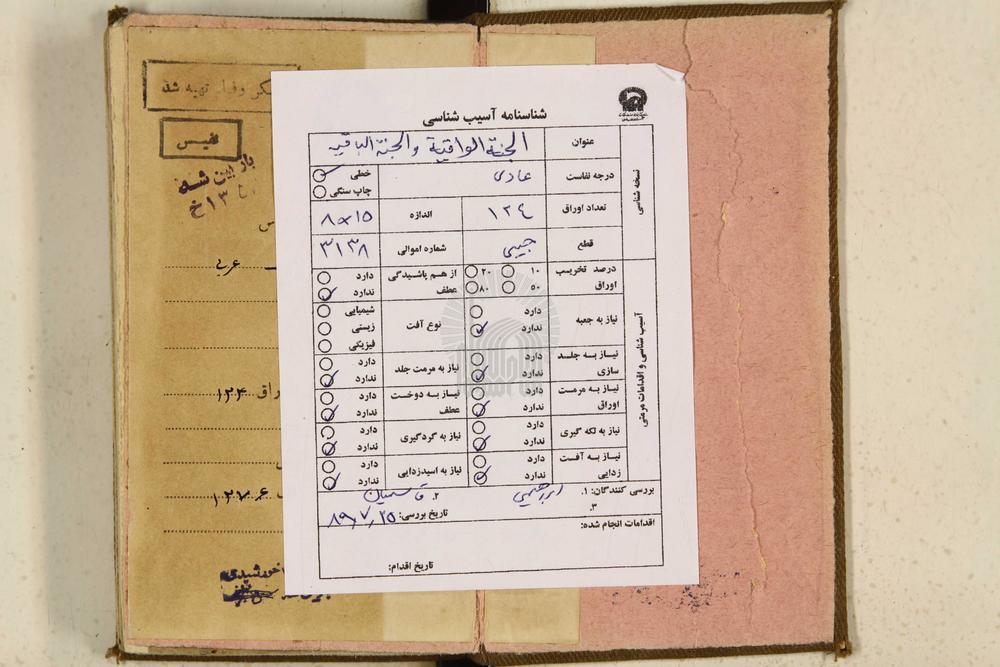 شناسنامه آسیب شناسی
نسخه شناسی
عنوان
الجنة الواقیة والجنة الباقیه
درجه نفاست
عادی
خطی
چاپ سنگی
تعداد اوراق
۱۲۴
اندازه
۸×۱۵
قطع
جیبی
شماره اموالی
۳۱۳۸
آسیب شناسی و اقدامات مرمتی
درصد تخریب اوراق
۱۰
۲۰
۵۰
۸۰
از هم پاشیدگی عطف
دارد
ندارد
نیاز به جعبه
دارد
ندارد
نوع آفت
شیمیایی
زیستی
فیزیکی
نیاز به جلد سازی
دارد
ندارد
نیاز به مرمت جلد
دارد
ندارد
نیاز به مرمت اوراق
دارد
ندارد
نیاز به دوخت عطف
دارد
ندارد
نیاز به لکه گیری
دارد
ندارد
نیاز به گردگیری
دارد
ندارد
نیاز به آفت زدایی
دارد
ندارد
نیاز به اسیدزدایی
دارد
ندارد
بررسی کنندگان: ۱. ابراهیمی ۲. قاسمیان
۳. تاریخ بررسی: ۸۹/۷/۲۵
اقدامات انجام شده:
تاریخ اقدام:
تهیه شد
نفیس
باز بین شد
عربی
۱۲۴